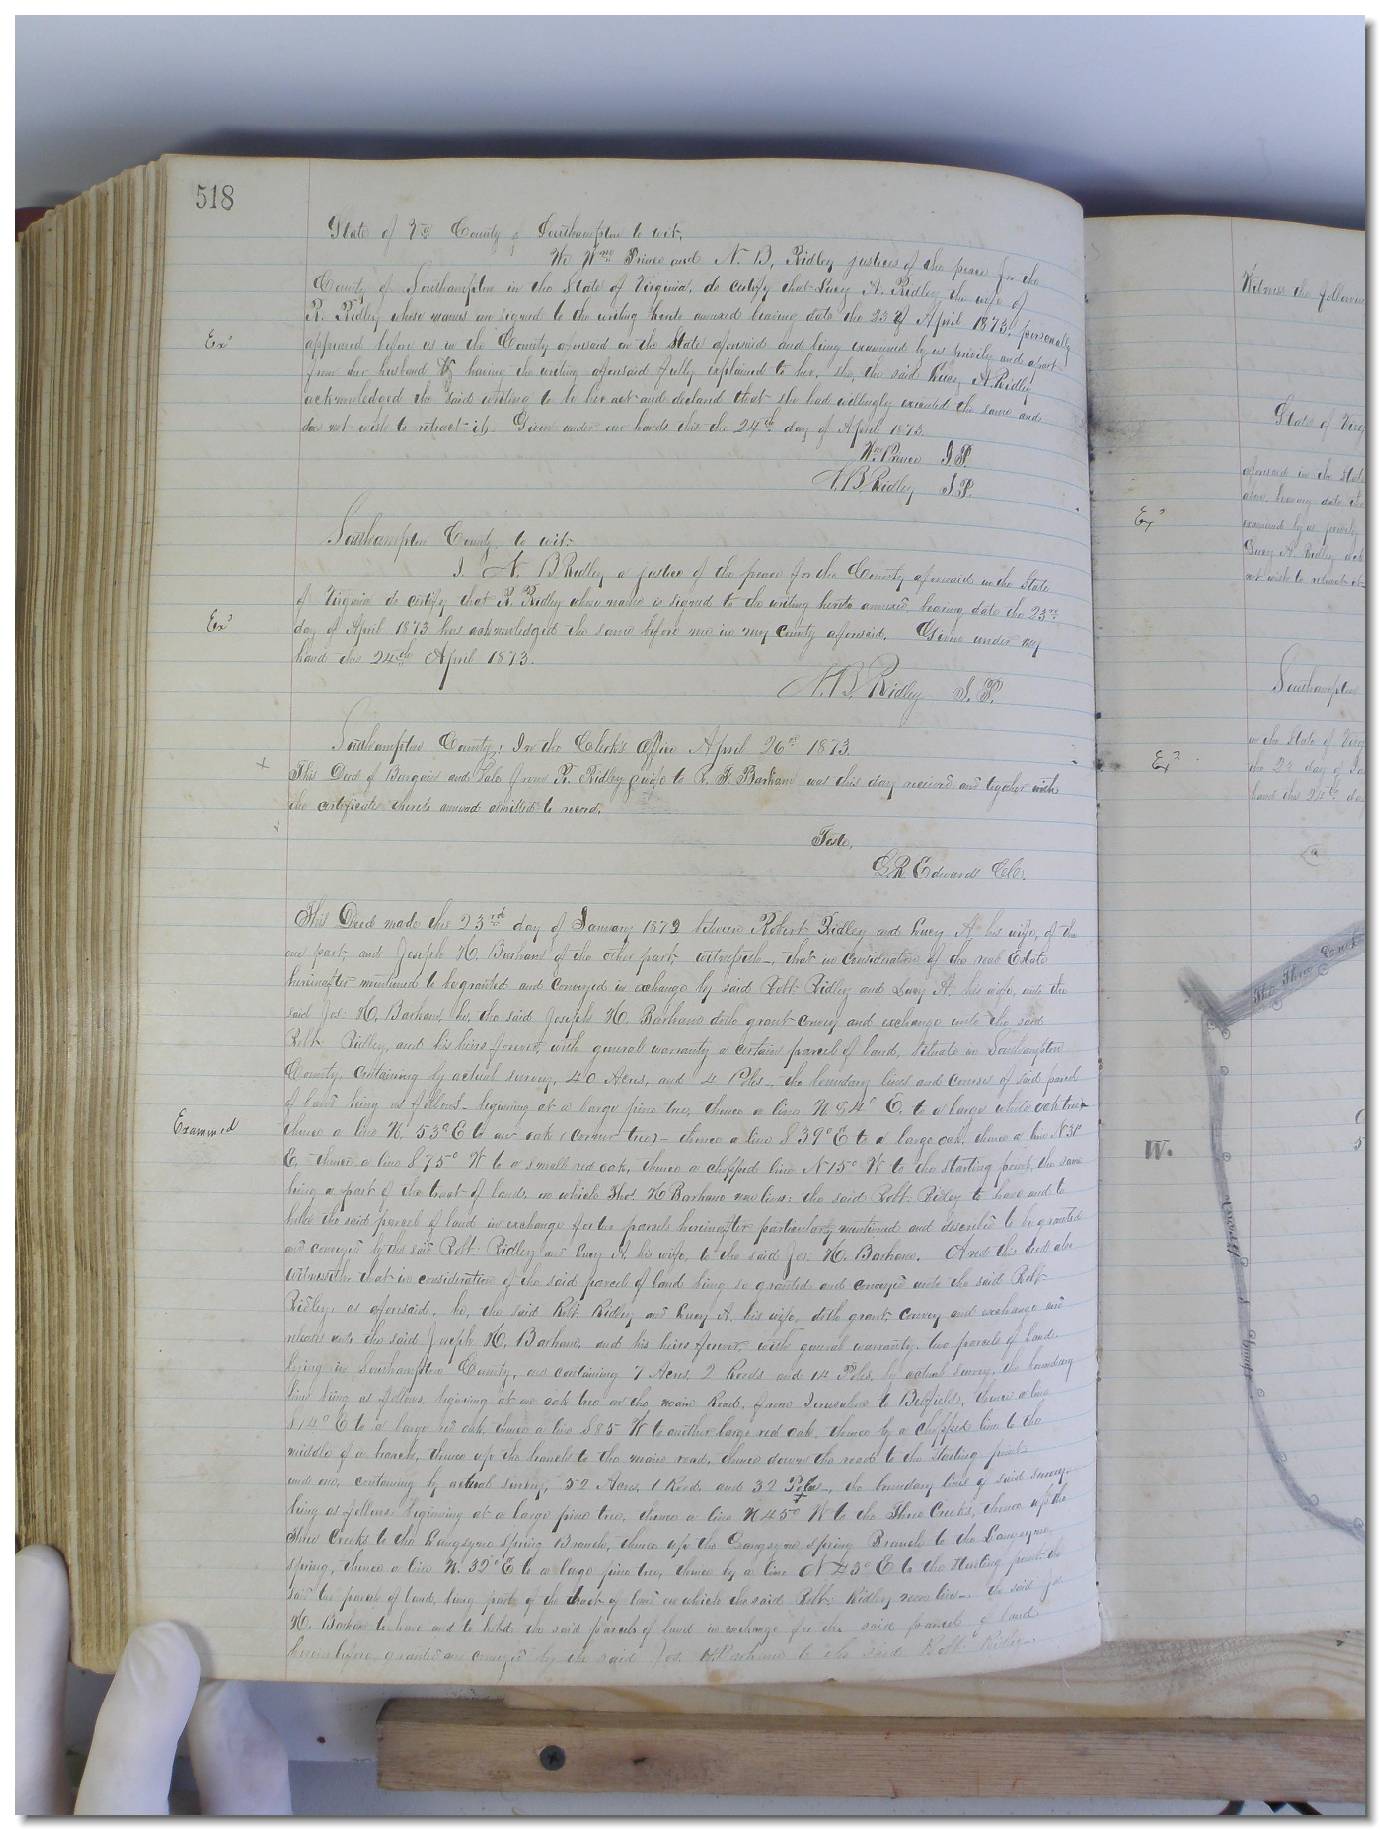 518
State of Va County of Southampton to wit,
We Wm Prince and N. B. Ridley justices of the peace for the
County of Southampton in the State of Virginia, do certify that Lucy A. Ridley the wife of
R. Ridley whose names are signed to the writing hereto annexed bearing date the 23d of April 1873, personally
Ex
appeared before us in the County aforesaid in the State aforesaid and being examined by us privily and apart
from her husband & having the writing aforesaid fully explained to her, she, the said Lucy A. Ridley
acknowledged the said writing to be her act and declared that she had willingly executed the same and
does not wish to retract it. Given under our hands this the 24th day of April 1873.
Wm. Prince J.P.
N. B. Ridley J.P.
Southampton County to wit
I. N. B Ridley a justice of the peace for the County aforesaid in the State
of Virginia do certify that R. Ridley whose name is signed to the writing hereto annexed, bearing date the 23rd
Ex
day of April 1873 has acknowledged the same before me in my county aforesaid. Given under my
hand this 24th April 1873.
N. B. Ridley J. P.
Southampton County, In the Clerk's Office April 26th 1873.
This Deed of Bargain and Sale from R. Ridley & wife to R. F. Barham was this day received and together with
the certificate thereto annexed admitted to record.
Teste,
G. R. Edwards C.C.
This Deed made this 23rd day of January 1872 between Robert Ridley and Lucy A. his wife, of the
one part, and Joseph H. Barham of the other part, witnesseth, that in consideration of the real Estate
hereinafter mentioned to be granted and conveyed in exchange by said Robt Ridley and Lucy A. his wife, unto the
said Jos. H. Barham, he, the said Joseph H. Barham doth grant convey and exchange unto the said
Robt Ridley, and his heirs forever, with general warranty a certain parcel of land, situate in Southampton
County, containing by actual survey, 40 Acres, and 4 Poles, the boundary lines and courses of said parcel
of land being as follows beginning at a large pine tree, thence a line N 84° E. to a large white oak tree
Examined
thence a line N. 53° E to an oak (corner tree) thence a line S 39° E to a large oak, thence a line
E, thence a line S 75° W to a small red oak, thence a chopped line N 15° W to the starting point, the same
being a part of the tract of land, on which Thos. H Barham now lives: the said Robt. Ridley to have and to
hold the said parcel of land in exchange for two parcels hereinafter particularly mentioned and described to be granted
and conveyed by the said Robt. Ridley and Lucy A. his wife, to the said Jos. H. Barham. And this deed also
witnesseth that in consideration of the said parcel of land being so granted and conveyed unto the said Robt
Ridley, as aforesaid, he, the said Robt Ridley and Lucy A. his wife, doth grant, convey and exchange and
unto the said Joseph H. Barham, and his heirs forever, with general warranty, two parcels of land
lying in Southampton County, one containing 7 Acres, 2 Roods and 14 Poles, by actual survey, the boundary
lines being as follows, beginning at an oak tree on the main Road, from Jerusalem to Belfield, thence a line
S 14° E to a large red oak, thence a line S 85 W to another large red oak, thence by a chopped line to the
middle of a branch, thence up the branch to the main road, thence down the road to the starting point
and one, containing by actual survey, 52 Acres, 1 Rood, and 32 Poles, the boundary lines of said survey
being as follows: beginning at a large pine tree, thence a line N 45° W to the Three Creeks, thence up the
Three Creeks to the Langsyne Spring Branch, thence up the Langsyne Spring Branch to the Langsyne
spring, thence a line N. 32° E to a large pine tree, thence by a line N 43° E to the starting point the
said two parcels of land, being parts of the tract of land on which the said Robt. Ridley now lives the said Jos.
H. Barham to have and to hold the said parcels of land in exchange for the said parcel of land
hereinbefore granted and conveyed by the said Jos. H. Barham to the said Robt Ridley
Witness the following
State of Virg
aforesaid in the State
above bearing date the
Ex
examined by us privily
Lucy A. Ridley ack
not wish to retract it
Southampton
in the State of Virg
Ex
the 23 day of Ja
hand this 24th da
The Three Creek
W.
Branch